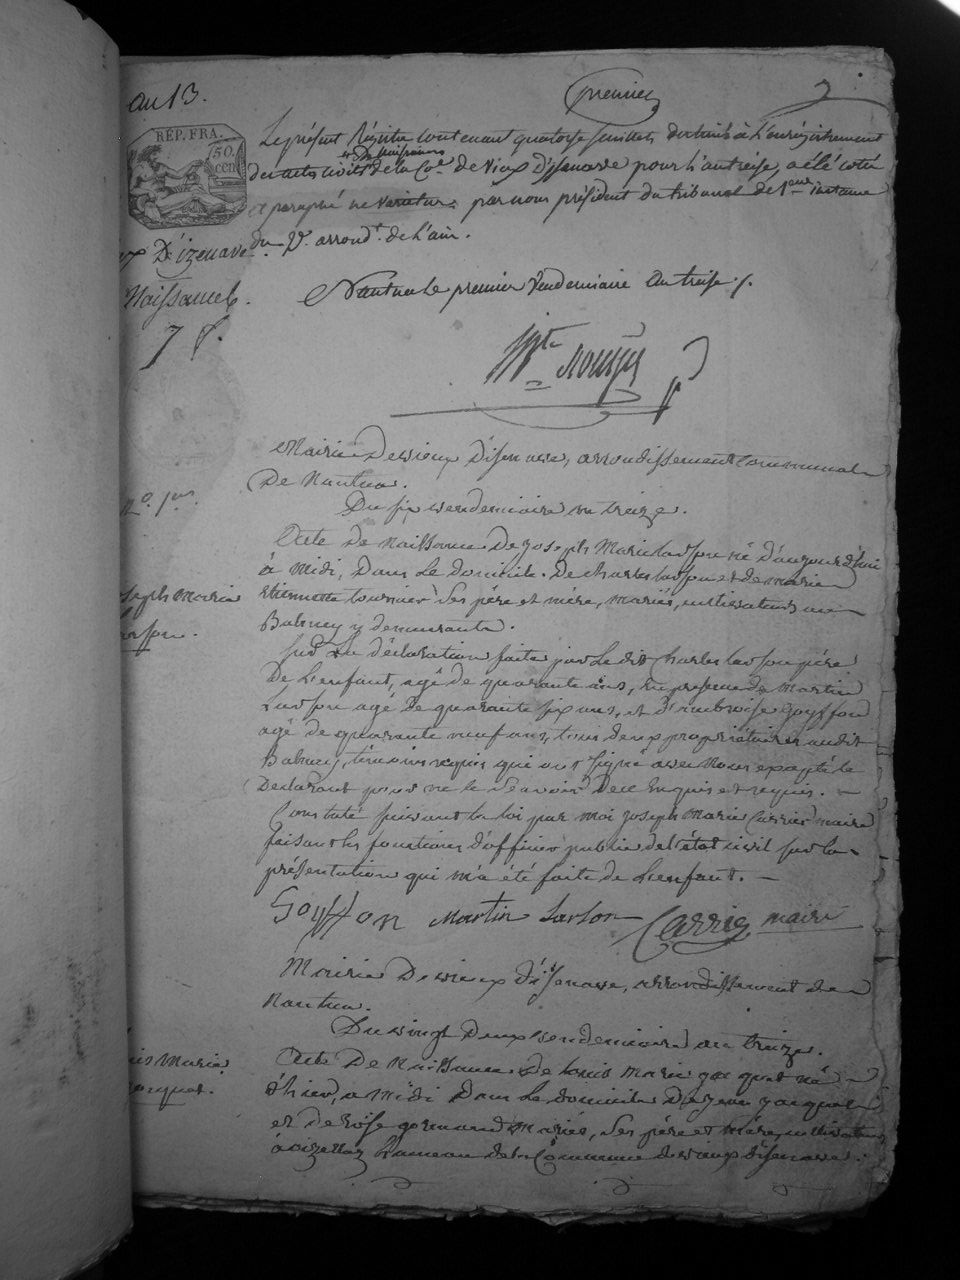 an 13.
premier
2
RÉP. FRA.
50.
cen
Le présent Régitre contenant quatorse feuillets destinés à L'enrégistrement
de Naissances
des actes civils de la Co.e de Vieux D'Isenave pour L'an treise, a été coté
et paraphé ne varietur, par nous président du tribunal de 1ere instance
du arrond.t de L'ain.
D'izenave
Naissances.
7
Nantua le premier Vendemiaire an treise
Mairie de vieux d'isenave, arrondissement communal
De Nantua.
Du six vendemiaire an treize.
N.o 1er
Acte de Naissance de joseph Marie né d'aujourd'hui
à Midi, Dans Le domicile De Charles et de marie
Etiennette tournier Ses père et mère, mariés, cultivateurs au
Balmey y demeurants.
joseph Marie
Sur La déclaration faite par Le dit Charles père
De L'enfant, agé de quarante ans, En presence de Martin
agé de quarante six ans, et d'ambroise Goyffon
agé de quarante neuf ans, tous deux propriétaires audit
Balmey, témoins requis qui ont Signé avec Nous excepté le
Déclarant pour ne le Savoir De ce Enquis et requis.
Constaté suivant la loi par moi joseph Marie Carrier maire
faisant les fonctions d'officier public de l'état civil sur la
présentation qui m'a été faite de L'enfant.
Goyffon Martin Carrier maire
Mairie De vieux d'isenave, arrondissement de
Nantua.
Du vingt deux vendemiaire an treize.
Louis Marie
Jacquet.
Acte De Naissance de Louis Marie jacquet né
d'hier, a Midi Dans Le domicile De jean jacquet
et de Rose germand Mariés, Ses père et mère, cultivateurs
à oizellaz hameau de la Commune de vieux d'isenave.